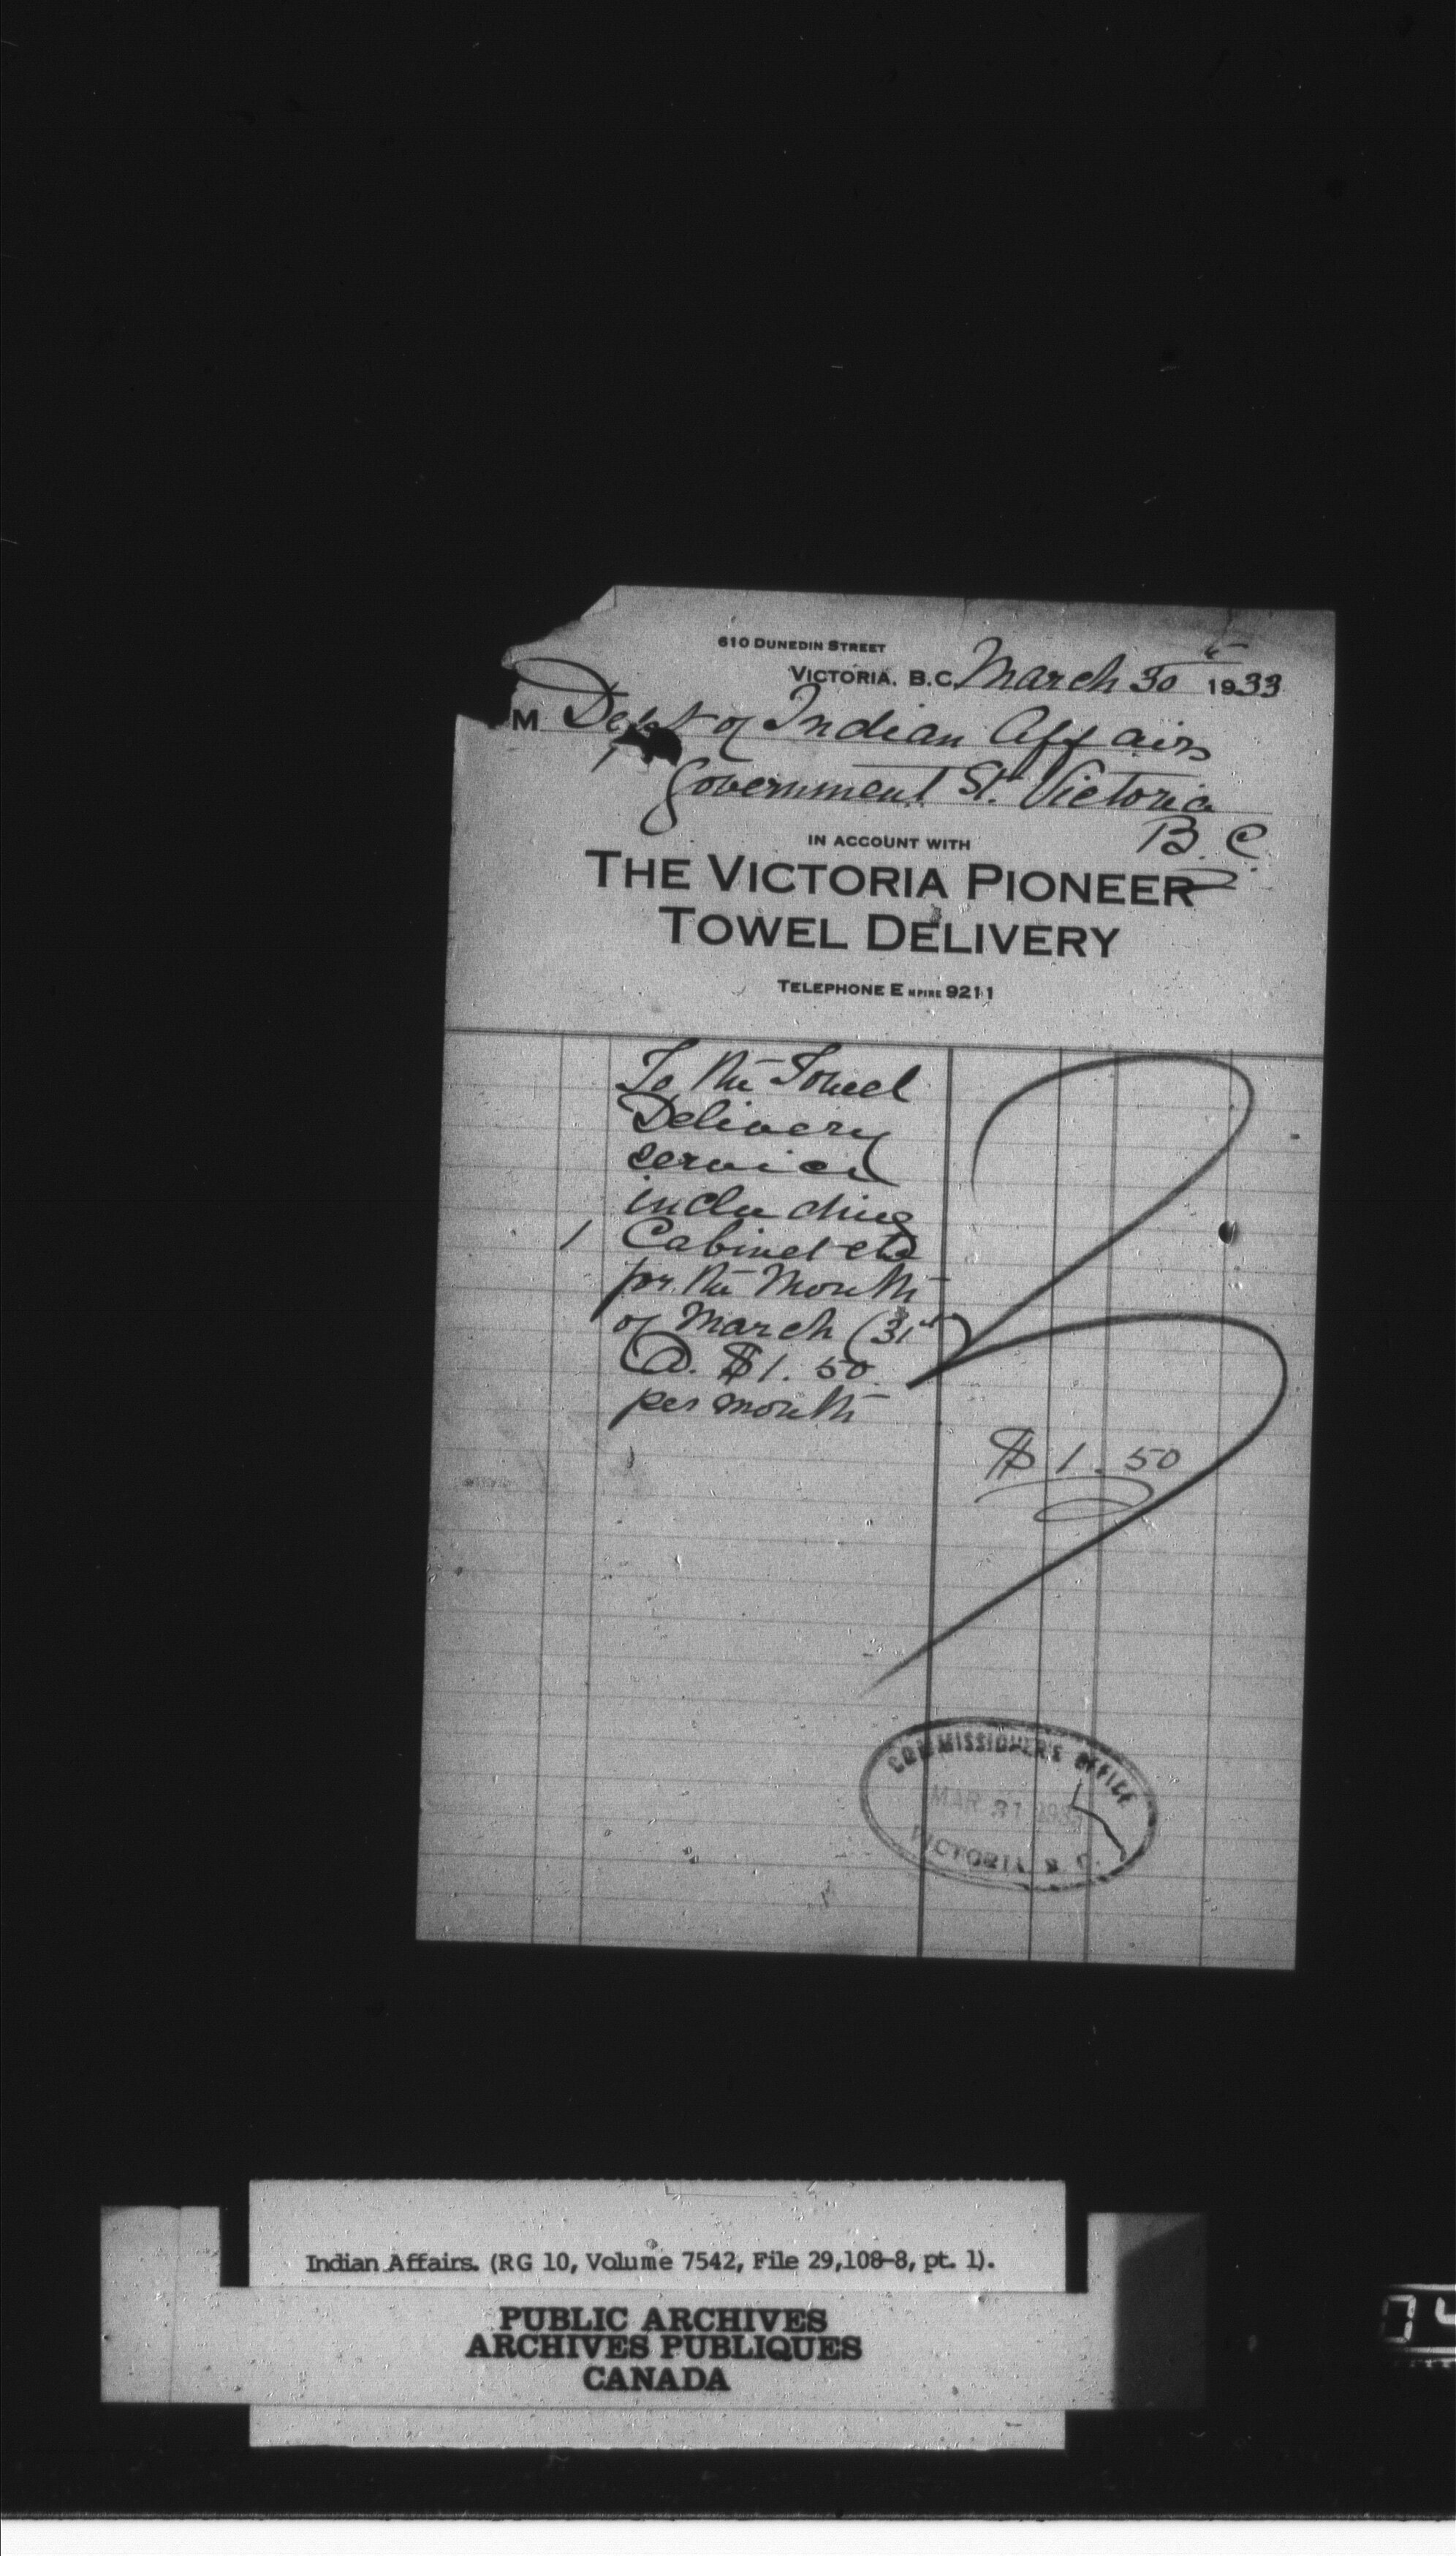 610 DUNEDIN STREET
VICTORIA, B.C. March 30th 1933
M Dept of Indian Affairs
Government St. Victoria
B.C.
IN ACCOUNT WITH
THE VICTORIA PIONEER
TOWEL DELIVERY
TELEPHONE EMPIRE 9211
To the Towel
Delivery
service
including
1 Cabinet etc
for the Month
of March (31st)
@. $1.50
per month
$1.50
COMMISSIONER'S OFFICE
MAR 31 1933
VICTORIA B.C.
Indian Affairs. (RG 10, Volume 7542, File 29,108-8, pt. 1).
PUBLIC ARCHIVES
ARCHIVES PUBLIQUES
CANADA